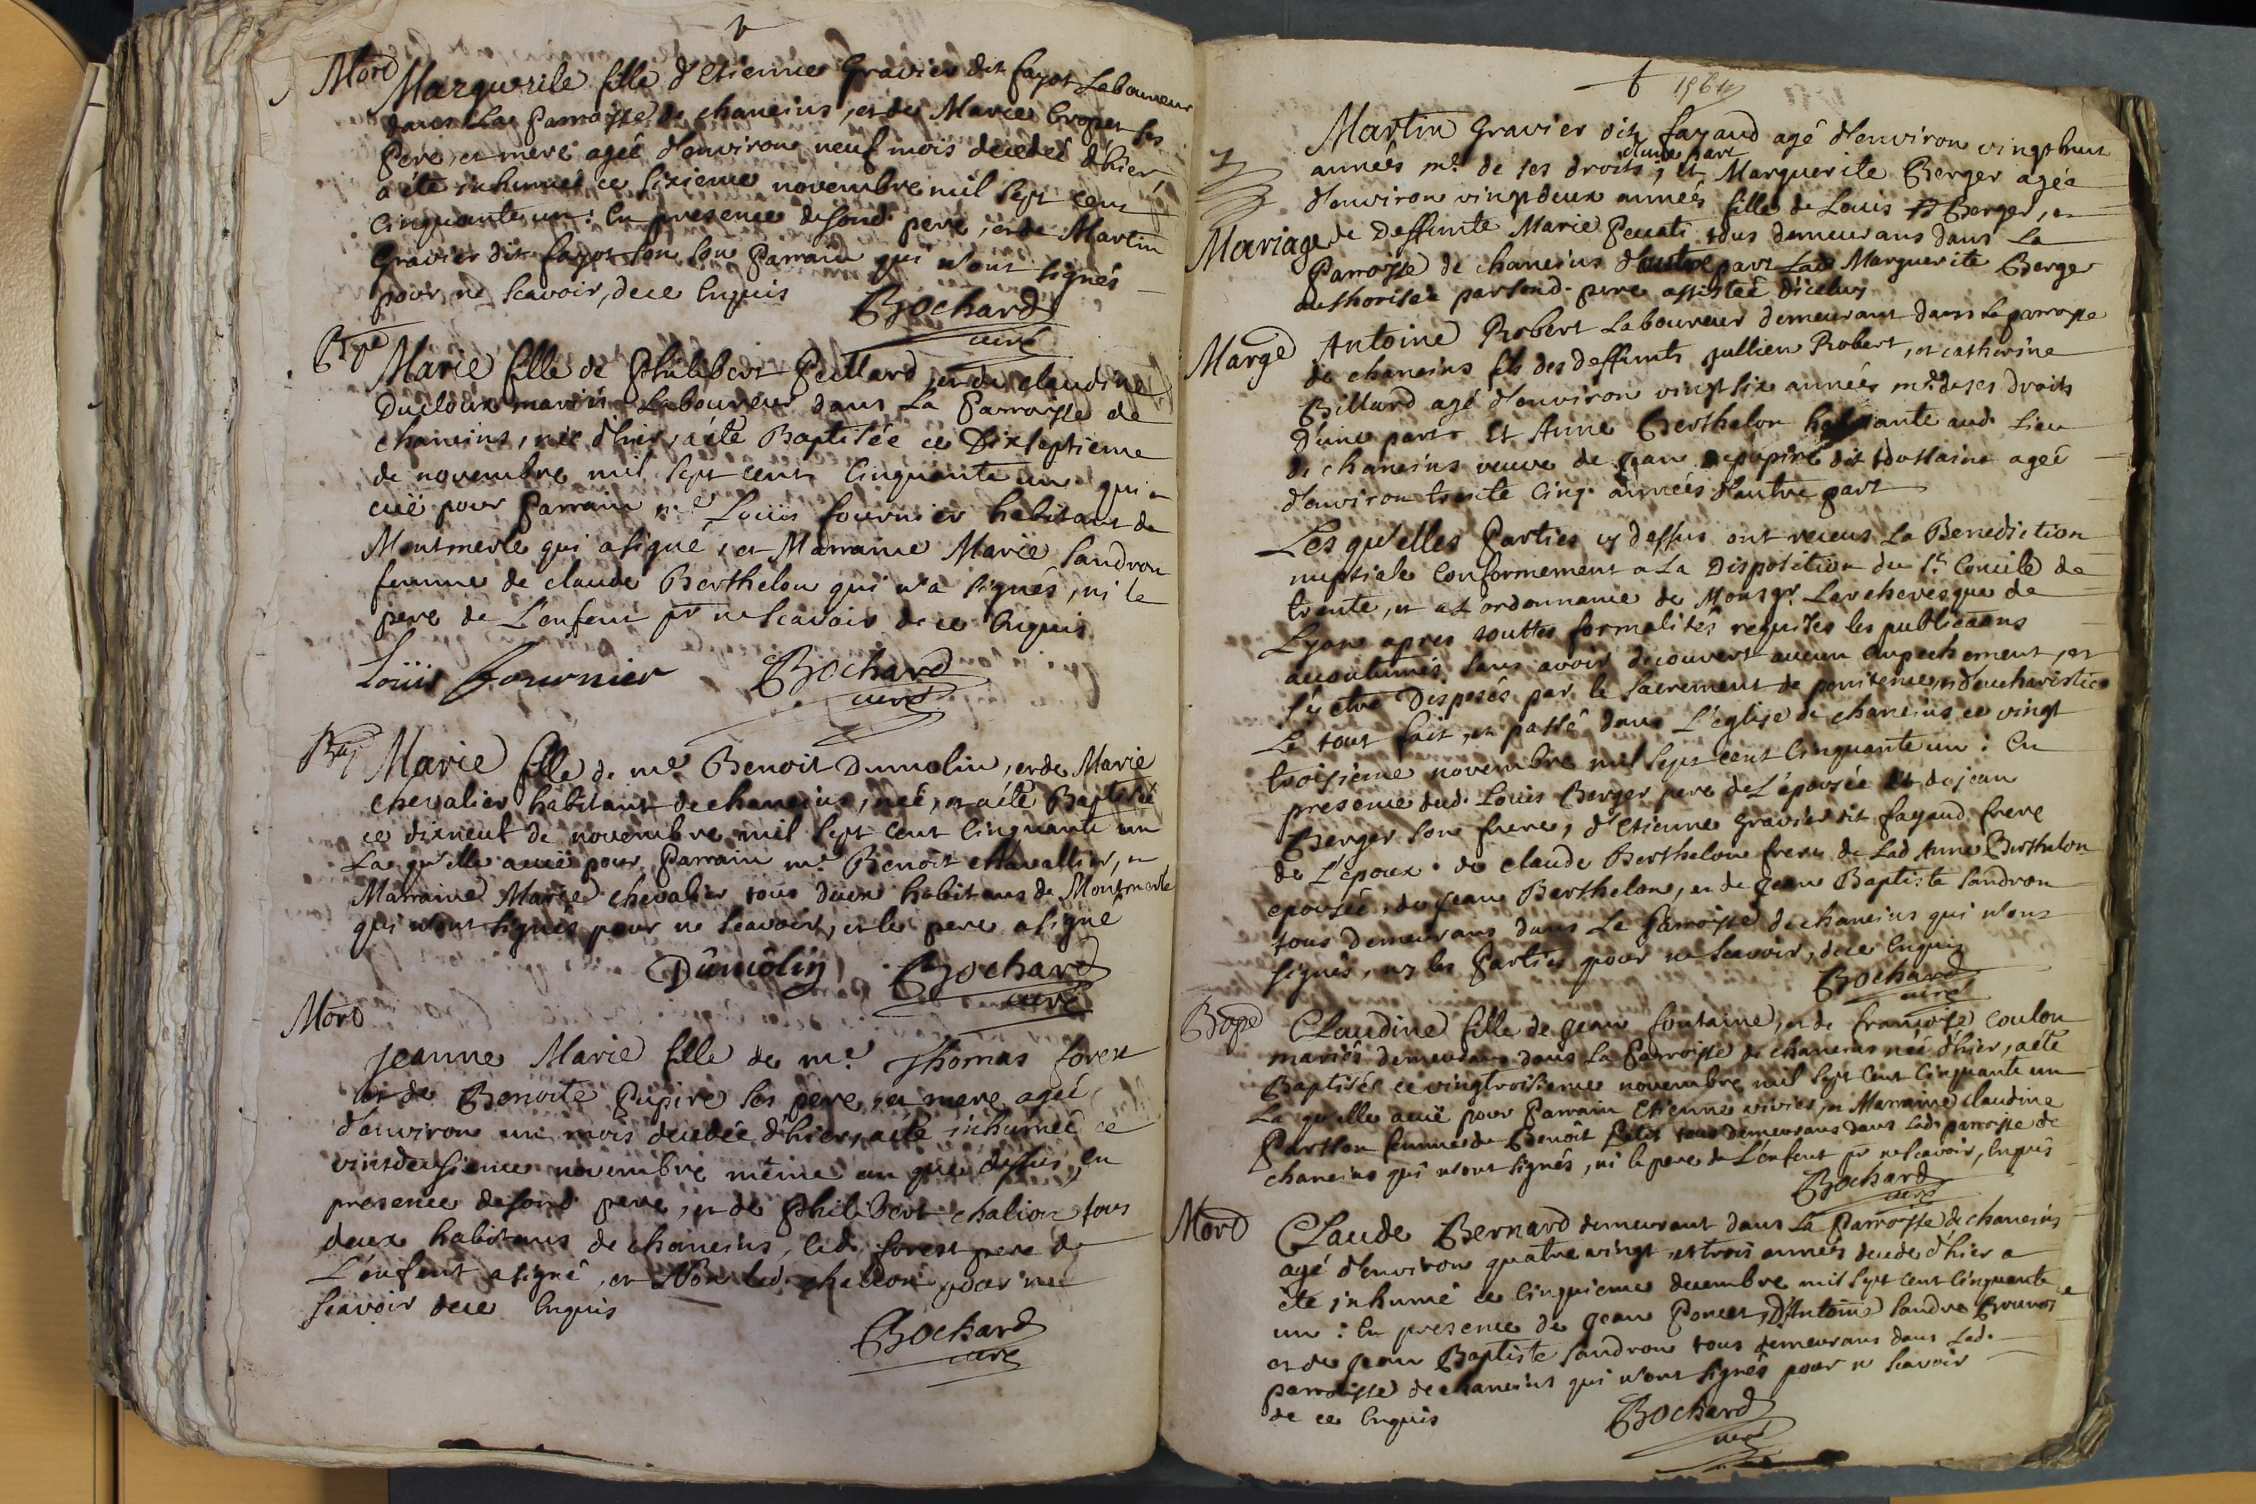 Mort Marguerite fille d'Etienne Gravier dit fayot Laboureur
dans La Parroisse de chaneins, et de Marie Broyer ses
Pere, et mere agée d'environ neuf mois decedeé d'hier,
a été inhumeé ce sixieme novembre mil sept cent
Cinquante un: En presence de sond. pere, et de Martin
Gravier dit fayot son son Parrain qui n'ont signés
pour ne scavoir, de ce Enquis
Bochard
curé
Bpe
Marie fille de Philibert Peillard, et de claudine
Ducloux mariés Laboureur dans La Parroisse de
chaneins, née d'hier, a été Baptisée ce Dixseptieme
de novembre mil sept cent Cinquante un qui a
euë pour Parrain mr. Loüis fournier habitant de
Montmerle qui a signé, et Marraine Marie Sandron
femme de claude Berthelon qui n'a signés, ni le
pere de L'enfent pr ne Scavoir de ce Enquis
Loüis fournier Bochard
curé
Marie fille de me. Benoit Dumolin, et de Marie
chevalier habitant de chaneins, neé, et a été Baptisé
ce dixneuf de novembre mil sept cent Cinquante un
La qu'elle a euë pour Parrain me. Benoit chavallier, et
Marraine Marie chevalier tous deux habitans de Montmerle
qui n'ont signés pour ne scavoir, et le pere a signé
Dumolin Bochard
curé
Mort
Jeanne Marie fille de me. Thomas forest
et de Benoite Pupire ses pere, et mere ageé
d'environ un mois decedeé d'hier, a été inhumeé ce
vintdeusieme novembre même an que dessus, En
presence de sond pere, et de Philibert chalion tous
deux habitans de chaneins, led. forest pere de
L'enfent a signé, et Non led. chalion pour ne
scavoir de ce Enquis
Bochard
curé
Martin Gravier dit fayaud agé d'environ vingt huit
d'une part
années me. de ses droits, et Marguerite Berger agée
d'environ vingt deux années fille de Louis Berger, et
Mariage de Deffunte Marie tous demeurans dans La
Parroisse de chaneins d'autre part Lade Marguerite Berger
authorisée par sond. pere assisteé d'iceluy
Marge Antoine Robert Laboureur demeurant dans La parroisse
de chaneins fils des deffunts jullien Robert, et catherine
Billard agé d'environ vingt six années me. de ses Droits
D'une part Et Anne Berthelon habitante aud. Lieu
de chaneins veuve de jean dit toussaint ageé
d'environ trente Cinq années d'autre part
Les qu'elles Parties cy dessus ont receus La Benediction
nuptiale Conformement a La Disposition du St. Concile de
trente, et a L'ordonnance de Monsgr. Larchevesque de
Lyon apres touttes formalités requises les publications
acoutumés sans avoir decouvert aucun Empechement, et
s'y etre Disposés par le Sacrement de penitence, et d'eucharistie
Le tout fait, et passé dans L'eglise de chaneins ce vingt
troisieme novembre mil Sept cent Cinquante un: En
presence dud. Louis Berger pere de L'épousée Et de jean
Berger son frere, d'Etienne Gravier dit fayaud frere
de L'époux. de claude Berthelon frere de Lad Anne Berthelon
epousée, de jean Berthelon, et de jean Baptiste Sandron
tous Demeurans dans La Parroisse de chaneins qui n'ont
signés, ny les Parties pour ne scavoir, de ce Enquis
Bochard
curé
Bape Claudine fille de jean fontaine, et de françoise coulon
mariés demeurans dans La Parroisse de chaneins neé d'hier, a été
Baptisée ce vingtroisieme novembre mil Sept cent Cinquante un
La qu'elle a euë pour Parrain Etienne vivier, et Marraine claudine
femme de Benoit tous demeurans dans Lad. parroisse de
chaneins qui n'ont signés, ni le pere de L'enfent pr ne scavoir, Enquis
Bochard
curé
Mort Claude Bernard demeurant dans La Parroisse de chaneins
agé d'environ quatre vingt et trois années decedé d'hier a
été inhumé ce Cinquieme decembre mil Sept cent Cinquante
un: En presence de jean Poncet, D'Antoine
et de jean Baptiste Sandron tous demeurans dans Lad.
parroisse de chaneins qui n'ont signés pour ne scavoir
de ce Enquis
Bochard
curé